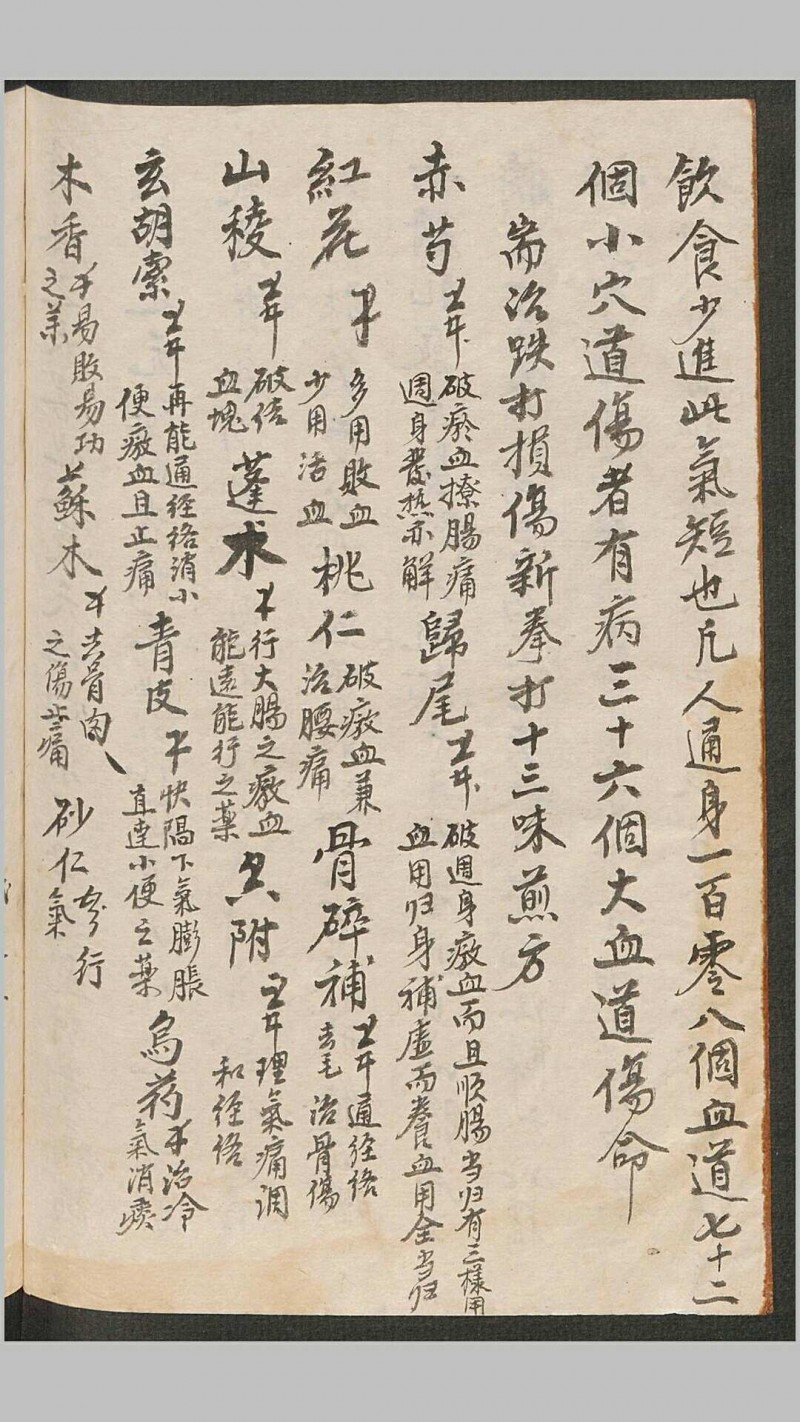 飲食少進此氣短也凡人通身一百零八個血道七十二
個小穴道傷者有病三十六個大血道傷命
耑治跌打損傷新拳打十三味煎方
赤芍 破瘀血撩腸痛
週身發热亦解
歸尾 破週身瘀血而且順腸当归有三樣用
血用归身補虛而養血用全当归
紅花 多用敗血
少用活血
桃仁 破瘀血兼
治腰痛
骨碎補 通經絡
去毛治骨傷
山稜 破结
血塊
蓬术 行大腸之瘀血
能遠能行之藥
附 理氣痛调
和经络
玄胡索 再能通经络消小
便瘀血且止痛
青皮 快隔下氣膨脹
直達小便之藥
烏药 治冷
氣消痰
木香 易散易功
之药
蘇木 去骨肉
之傷止痛
砂仁 行
氣